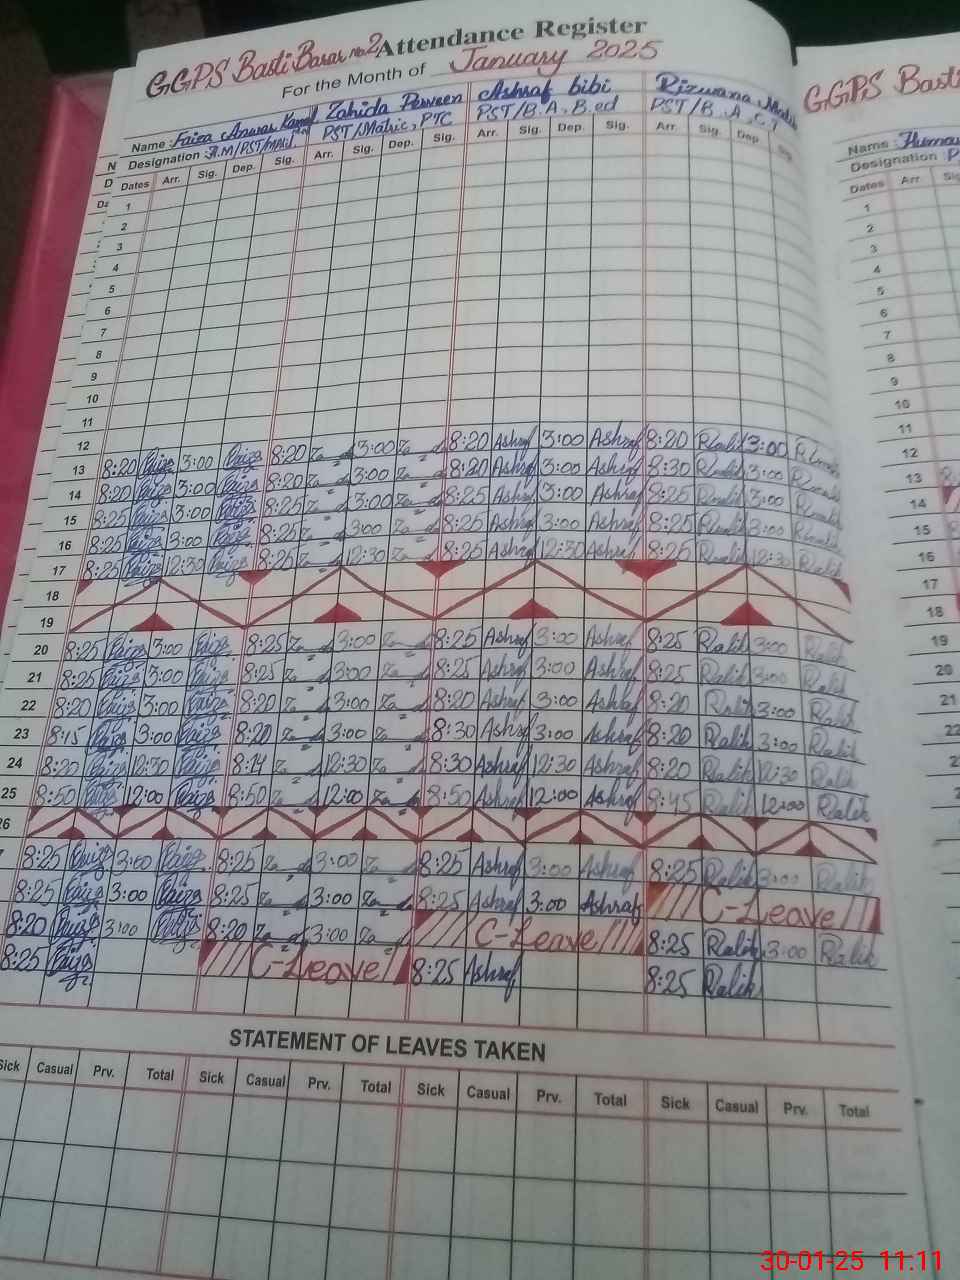 GGPS Basti Basar No 2 Attendance Register
For the Month of January 2025
Name : Faiza Anwar Kamal Zahida Perveen Ashraf bibi Rizwana Malik
Designation : PST/Matric, PTC PST/B.A, B.ed PST/B.A, C.T
Dates Arr. Sig. Dep. Sig. Arr. Sig. Dep. Sig. Arr. Sig. Dep. Sig. Arr. Sig. Dep. Sig.
1
2
3
4
5
6
7
8
9
10
11
12
13 8:20 Faiza 3:00 Faiza 8:20 3:00 8:20 Ashraf 3:00 Ashraf 8:20 Ralik 3:00
14 8:20 Faiza 3:00 Faiza 8:20 3:00 8:20 Ashraf 3:00 Ashraf 8:30 Ralik 3:00
15 8:25 Faiza 3:00 Faiza 8:25 3:00 8:25 Ashraf 3:00 Ashraf 8:25 Ralik 3:00
16 8:25 Faiza 3:00 Faiza 8:25 3:00 8:25 Ashraf 3:00 Ashraf 8:25 Ralik 3:00
17 8:25 Faiza 12:30 Faiza 8:25 12:30 8:25 Ashraf 12:30 Ashraf 8:25 Ralik 12:30 Ralik
18
19
20 8:25 Faiza 3:00 Faiza 8:25 3:00 8:25 Ashraf 3:00 Ashraf 8:25 Ralik 3:00 Ralik
21 8:25 Faiza 3:00 Faiza 8:25 3:00 8:25 Ashraf 3:00 Ashraf 8:25 Ralik 3:00 Ralik
22 8:20 Faiza 3:00 Faiza 8:20 3:00 8:20 Ashraf 3:00 Ashraf 8:20 Ralik 3:00 Ralik
23 8:15 Faiza 3:00 Faiza 8:20 3:00 8:30 Ashraf 3:00 Ashraf 8:20 Ralik 3:00 Ralik
24 8:20 Faiza 12:30 Faiza 8:14 12:30 8:30 Ashraf 12:30 Ashraf 8:20 Ralik 12:30 Ralik
25 8:50 Faiza 12:00 Faiza 8:50 12:00 8:50 Ashraf 12:00 Ashraf 8:45 Ralik 12:00 Ralik
26
7 8:25 Faiza 3:00 Faiza 8:25 3:00 8:25 Ashraf 3:00 Ashraf 8:25 Ralik 3:00 Ralik
8:25 Faiza 3:00 Faiza 8:25 3:00 8:25 Ashraf 3:00 Ashraf C-Leave
8:20 Faiza 3:00 Faiza 8:20 3:00 C-Leave 8:25 Ralik 3:00 Ralik
8:25 Faiza C-Leave 8:25 Ashraf 8:25 Ralik
STATEMENT OF LEAVES TAKEN
Sick Casual Prv. Total Sick Casual Prv. Total Sick Casual Prv. Total Sick Casual Prv. Total
GGPS Basti
Name :
Designation :
Dates Arr.
1
2
3
4
5
6
7
8
9
10
11
12
13
14
15
16
17
18
19
20
21
30-01-25 11:11